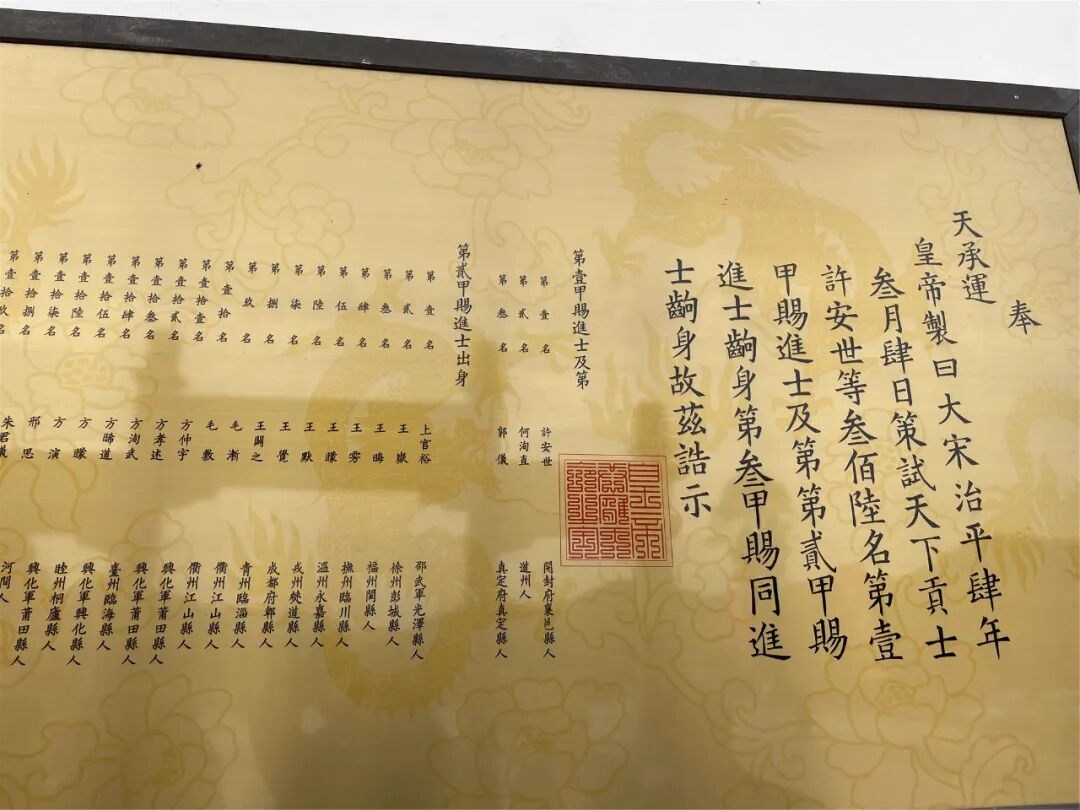 奉
天承運
皇帝製曰大宋治平肆年
叁月肆日策試天下貢士
許安世等叁佰陸名第壹
甲賜進士及第第貳甲賜
進士齣身第叁甲賜同進
士齣身故茲誥示
第壹甲賜進士及第
第壹名 許安世 開封府襄邑縣人
第貳名 何洵直 道州人
第叁名 郭儀 真定府真定縣人
第貳甲賜進士出身
第壹名 上官裕 邵武軍光澤縣人
第貳名 王嶽 徐州彭城縣人
第叁名 王晦 福州閩縣人
第肆名 王雱 撫州臨川縣人
第伍名 王曚 溫州永嘉縣人
第陸名 王默 戎州僰道縣人
第柒名 王覺 成都府郫縣人
第捌名 王闢之 青州臨淄縣人
第玖名 毛漸 衢州江山縣人
第壹拾名 毛斆 衢州江山縣人
第壹拾壹名 方仲宇 興化軍莆田縣人
第壹拾貳名 方孝述 興化軍莆田縣人
第壹拾叁名 方洵武 臺州臨海縣人
第壹拾肆名 方晞道 興化軍興化縣人
第壹拾伍名 方曚 睦州桐廬縣人
第壹拾陸名 方演 興化軍莆田縣人
第壹拾柒名 邢思 河間人
第壹拾捌名 朱君儀
第壹拾玖名